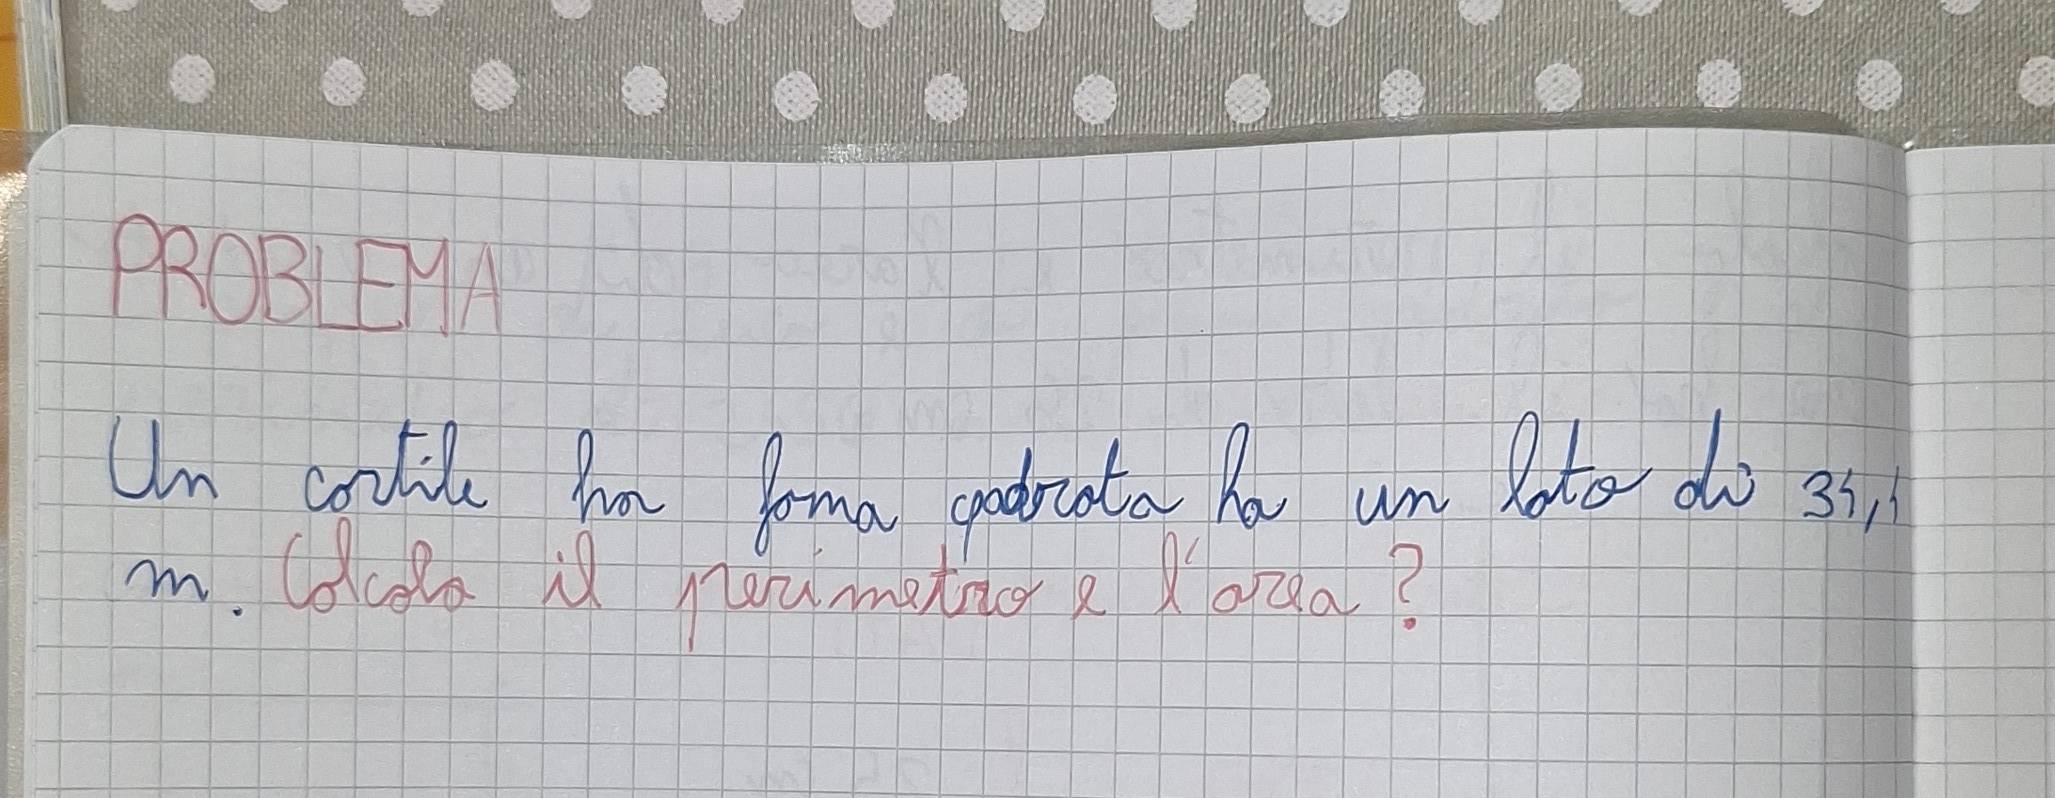 PROBLEMA
Un cortile ha foma qadrata ha un lato di
m. Calcola il perimetro e l'area?